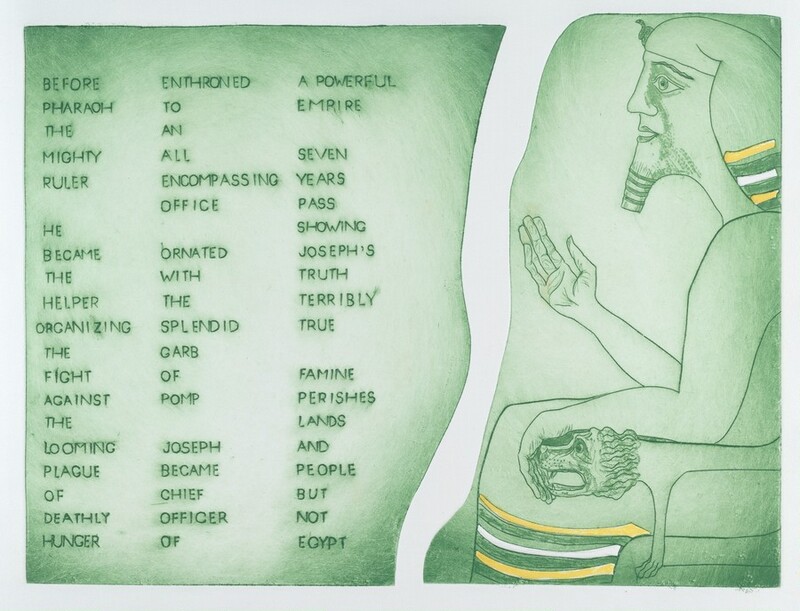 BEFORE
PHARAOH
THE
MIGHTY
RULER
HE
BECAME
THE
HELPER
ORGANIZING
THE
FIGHT
AGAINST
THE
LOOMING
PLAGUE
OF
DEATHLY
HUNGER
ENTHRONED
TO
AN
ALL
ENCOMPASSING
OFFICE
ORNATED
WITH
THE
SPLENDID
GARB
OF
POMP
JOSEPH
BECAME
CHIEF
OFFICER
OF
A POWERFUL
EMPIRE
SEVEN
YEARS
PASS
SHOWING
JOSEPH'S
TRUTH
TERRIBLY
TRUE
FAMINE
PERISHES
LANDS
AND
PEOPLE
BUT
NOT
EGYPT